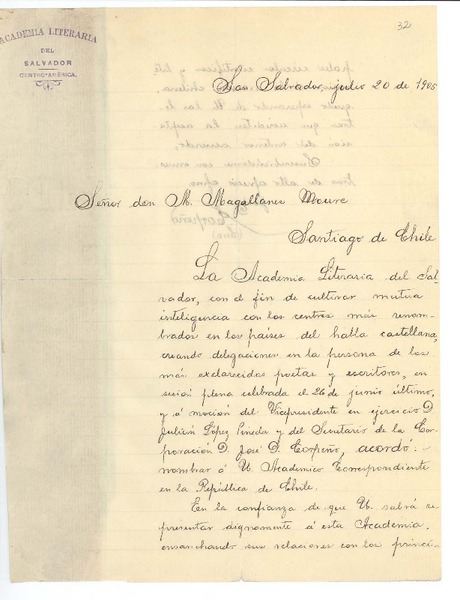 32
ACADEMIA LITERARIA
DEL
SALVADOR
CENTRO-AMÉRICA.
San Salvador, julio 20 de 1905
Señor don M. Magallanes Moure
Santiago de Chile
La Academia Literaria del Sal-
vador, con el fin de cultivar mutua
inteligencia con los centros más renom-
brados en los países del habla castellana,
creando delegaciones en la persona de los
más esclarecidos poetas y escritores, en
sesión plena celebrada el 26 de junio último,
y á moción del Vicepresidente en ejercicio D.
Julián López Pineda y del Secretario de la Cor-
poración D. José D. Corpeño, acordó:
nombrar á U. Academico Correspondiente
en la República de Chile.
En la confianza de que U. sabrá re-
presentar dignamente á esta Academia,
ensanchando sus relaciones con los princi-